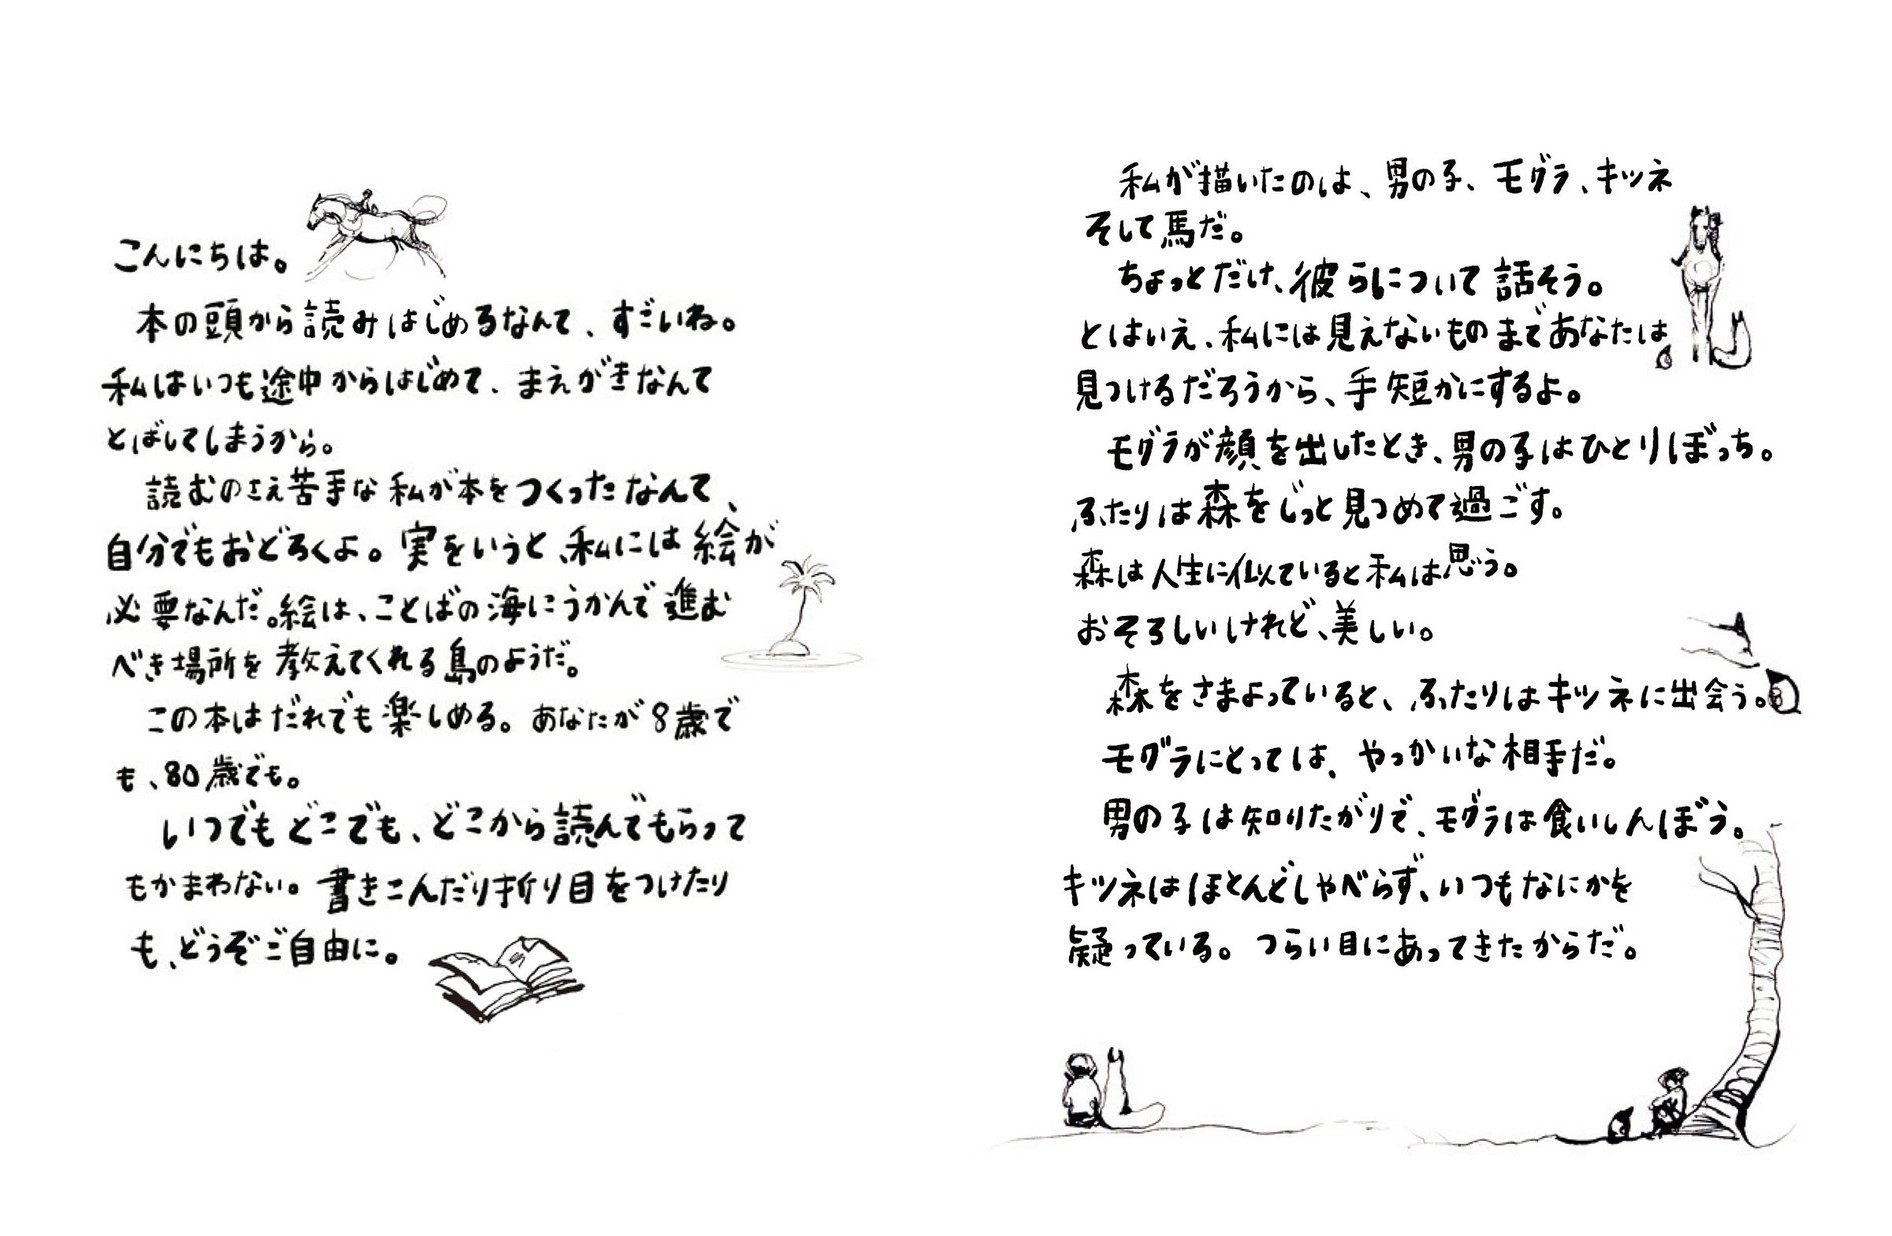 こんにちは。
本の頭から読みはじめるなんて、すごいね。
私はいつも途中からはじめて、まえがきなんて
とばしてしまうから。
読むのさえ苦手な私が本をつくったなんて、
自分でもおどろくよ。実をいうと、私には絵が
必要なんだ。絵は、ことばの海にうかんで進む
べき場所を教えてくれる島のようだ。
この本はだれでも楽しめる。あなたが8歳で
も、80歳でも。
いつでもどこでも、どこから読んでもらって
もかまわない。書きこんだり折り目をつけたり
も、どうぞご自由に。
私が描いたのは、男の子、モグラ、キツネ
そして馬だ。
ちょっとだけ、彼らについて話そう。
とはいえ、私には見えないものまであなたは
見つけるだろうから、手短かにするよ。
モグラが顔を出したとき、男の子はひとりぼっち。
ふたりは森をじっと見つめて過ごす。
森は人生に似ていると私は思う。
おそろしいけれど、美しい。
森をさまよっていると、ふたりはキツネに出会う。
モグラにとっては、やっかいな相手だ。
男の子は知りたがりで、モグラは食いしんぼう。
キツネはほとんどしゃべらず、いつもなにかを
疑っている。つらい目にあってきたからだ。